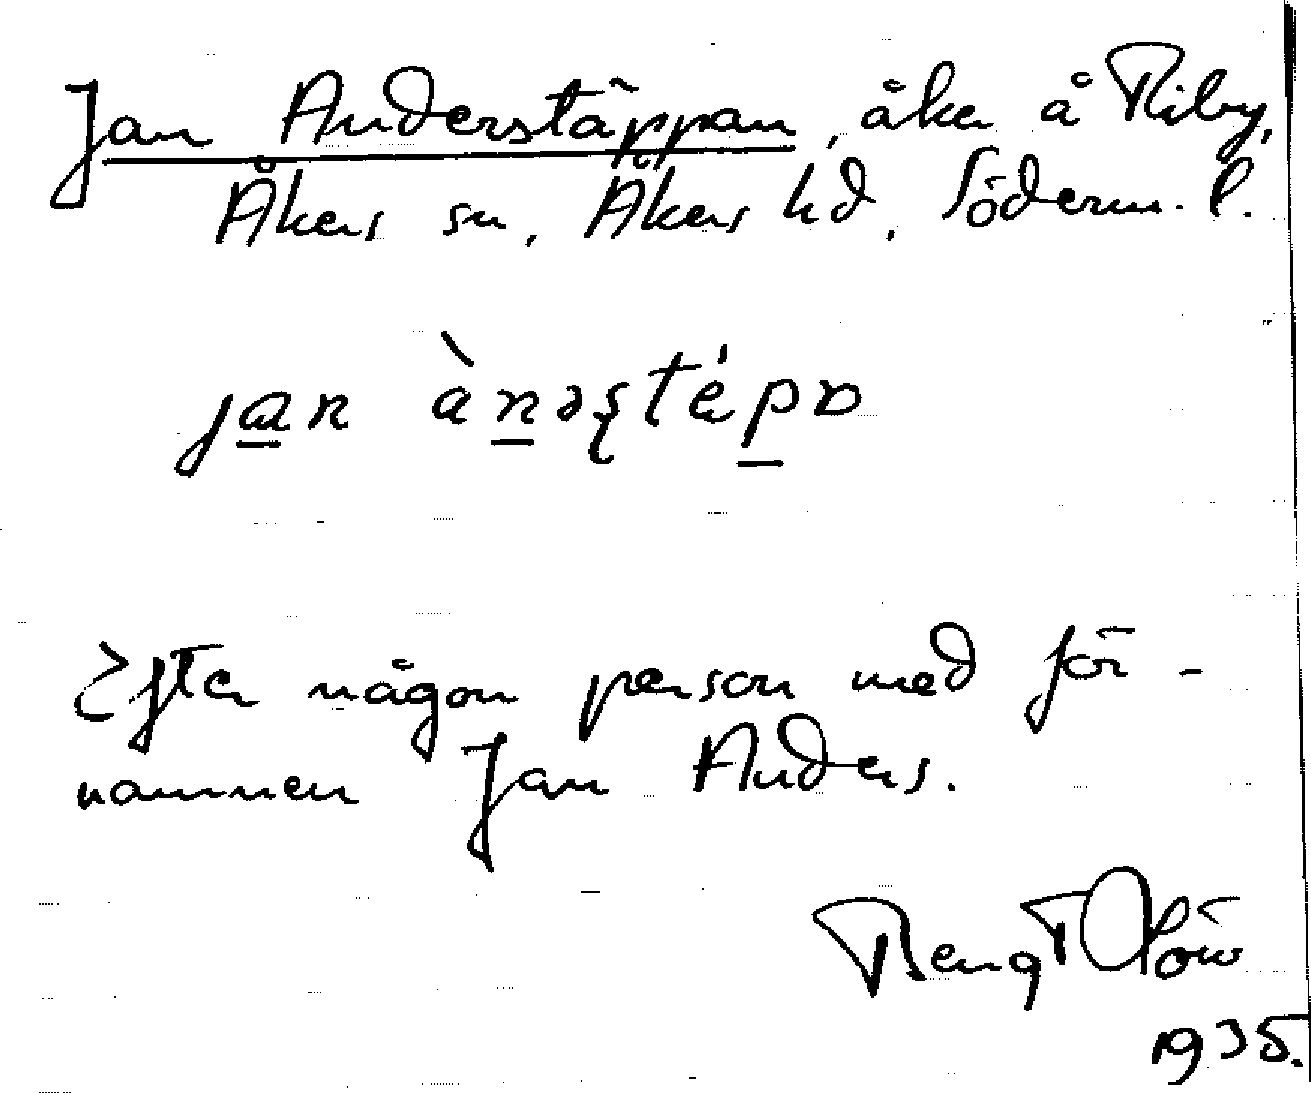 Jan Anderstäppan, åker å Riby,
Åkers sn, Åkers hd, Söderm. l.
jan ànəştépɒ
Efter någon person med för-
namnen Jan Anders.
Bengt
1935.